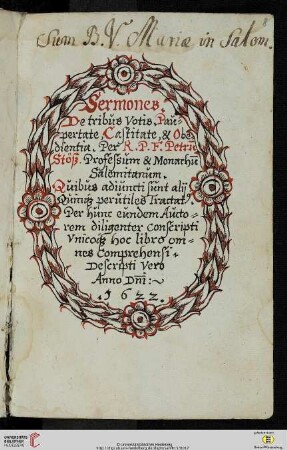 Sum B. V. Mariæ in Salem.
Sermones
De tribus Votis, Pau-
pertate Castitate, & Obe-
dientia. Per R. P. F. Petru
Stöß. Professum & Monachu
Salemitanum.
Quibus adiuncti sunt alij
Quinq perutiles Tractat
Per hunc eundem Aucto-
rem diligenter Conscripti
Vnicoq hoc libro om-
nes Comprehensi
Descripti Vero
Anno Dni:~
.1622.
UNIVERSITÄTS-
BIBLIOTHEK
HEIDELBERG
© Universitätsbibliothek Heidelberg
Baden-Württemberg